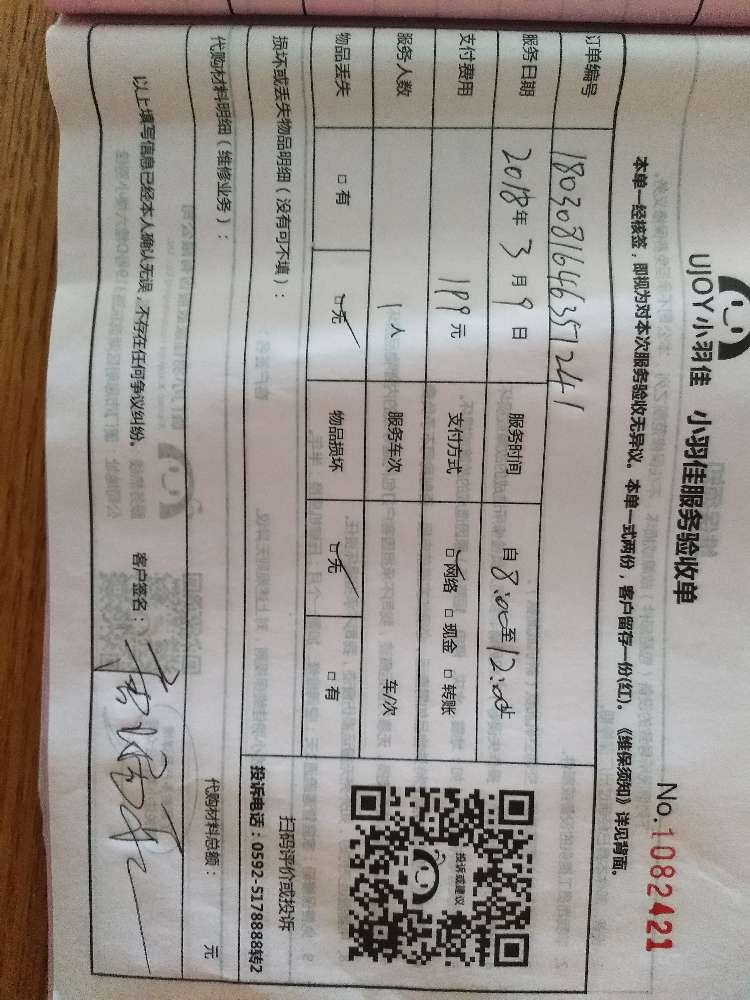 UJOY小羽佳 小羽佳服务验收单
No.1082421
本单一经核签，即视为对本次服务验收无异议。本单一式两份，客户留存一份(红)。《维保须知》详见背面。
订单编号 1803081646357241
服务日期 2018年 3月 9日 服务时间 自8:00至12:00
支付费用 199元 支付方式 □网络 □现金 □转账
服务人数 1人 服务车次 车/次
物品丢失 □有 □无 物品损坏 □无 □有
损坏或丢失物品明细（没有可不填）：
投诉或建议
扫码评价或投诉
投诉电话：0592-5178888转2
代购材料明细（维修业务）：
代购材料总额： 元
以上填写信息已经本人确认无误，不存在任何争议纠纷。 客户签名：